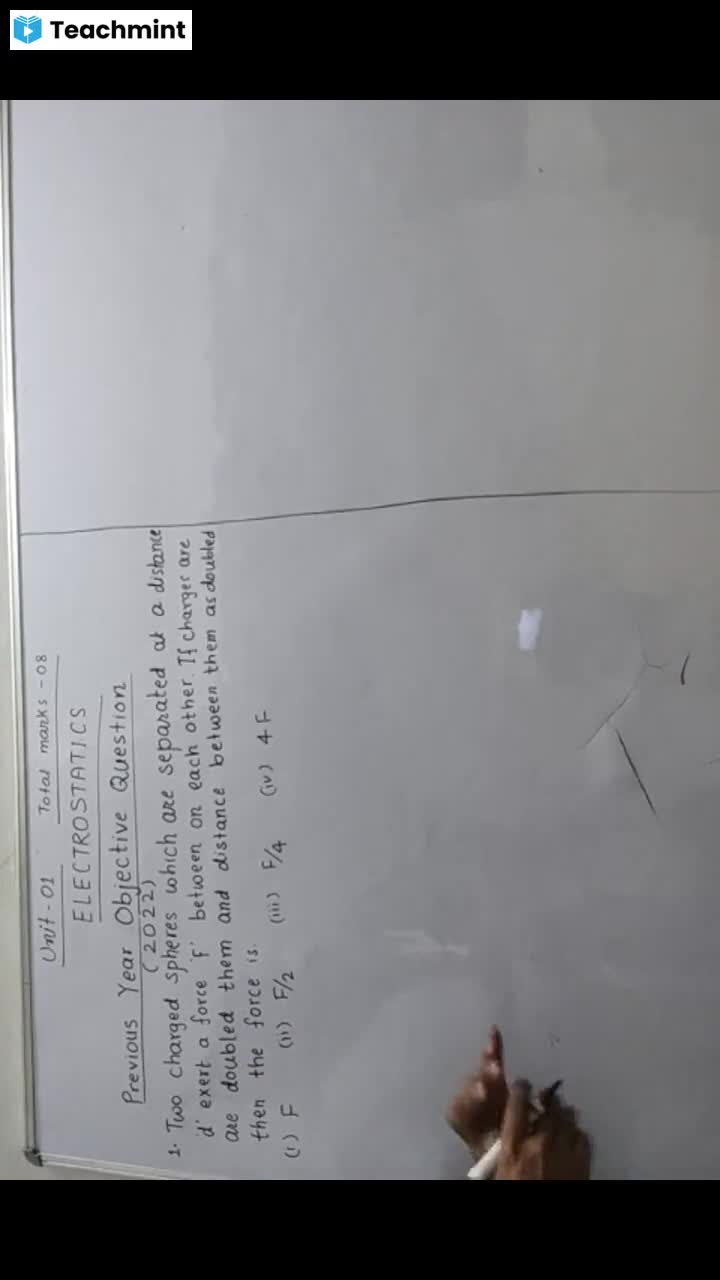 Teachmint
Unit-01 Total marks - 08
ELECTROSTATICS
Previous Year Objective Question
(2022)
1. Two charged spheres which are separated at a distance
'd' exert a force 'F' between on each other. If charges are
are doubled them and distance between them as doubled
then the force is.
(i) F (ii) F/2 (iii) F/4 (iv) 4F